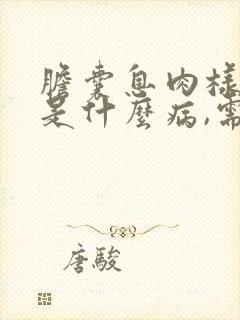 膽囊息肉樣
是什麼病,需
唐駿